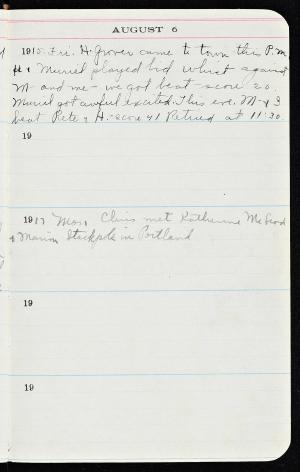 AUGUST 6
1915. Fri. H. Grover came to town this P.M.
H & Muriel played bid whist against
M and me - we got beat - score 20.
Muriel got awful excited. This eve. M. & I
beat Pete & H. - score 41 Retired at 11:30.
19
1917 Mon. Chris met Katherine McLeod
& Marion Stackpole in Portland
19
19